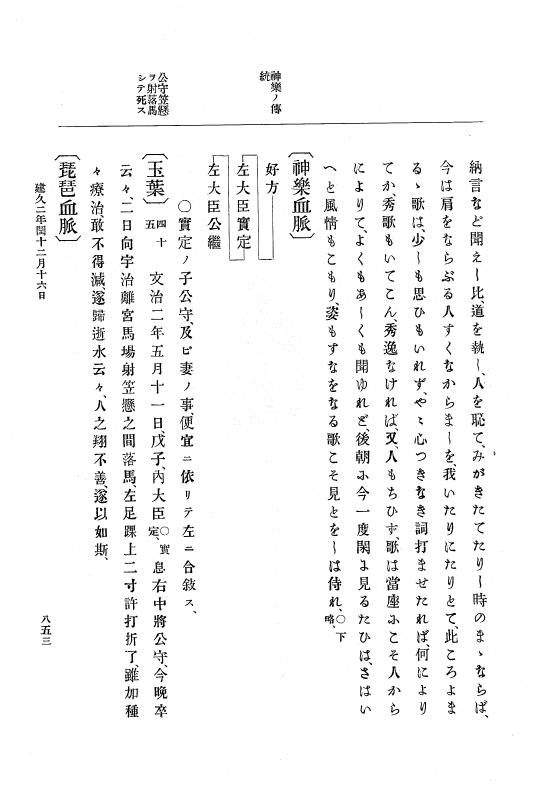 神樂ノ傳
統
公守笠懸
ヲ射落馬
シテ死ス
納言など聞えし比、道を執し、人を恥て、みがきたてたりし時のまゝならば、
今は肩をならぶる人すくなからましを、我いたりにたりとて、此ころよま
るゝ歌は、少しも思ひもいれず、やゝ心つきなき詞打ませたれば、何により
てか、秀歌もいてこん、秀逸なければ、又、人もちひず、歌は當座にこそ人から
によりて、よくもあしくも聞ゆれど、後朝に今一度閑に見るたひは、さはい
へと風情もこもり、姿もすなをなる歌こそ見とをしは侍れ、○下略、
〔神樂血脈〕
好方
左大臣實定
左大臣公繼
○實定ノ子公守、及ビ妻ノ事、便宜ニ依リテ左ニ合敍ス、
〔玉葉〕四十五 文治二年五月十一日、戊子、內大臣○實定、息右中將公守、今曉卒
云々、二日向宇治離宮馬場射笠懸之間落馬、左足踝上二寸許打折了、雖加種
々療治、敢不得減、遂歸逝水云々、人之翔不善、遂以如斯、
〔琵琶血脈〕
建久二年閏十二月十六日
八五三